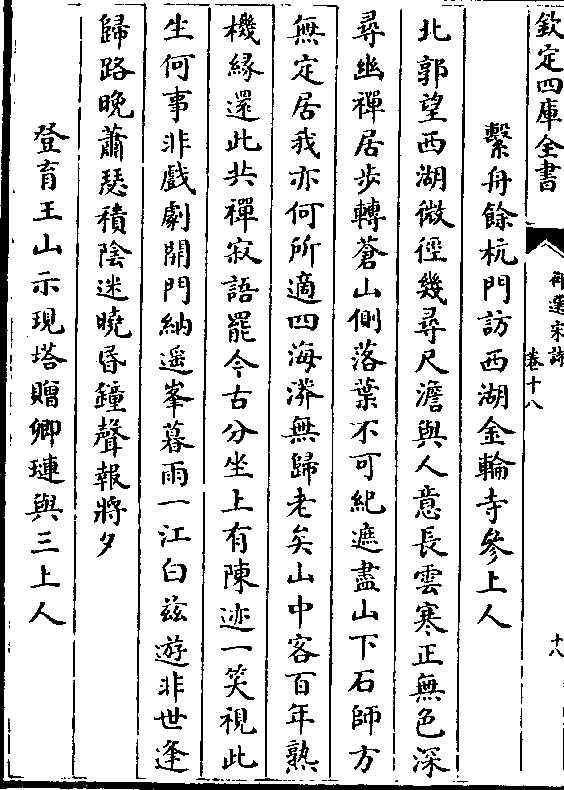 欽定四庫全書
御選宋詩 卷十八
十八
繫舟餘杭門訪西湖金輪寺參上人
北郭望西湖微徑幾尋尺澹與人意長雲寒正無色深
尋幽禪居步轉蒼山側落葉不可紀遮盡山下石師方
無定居我亦何所適四海渺無歸老矣山中客百年熟
機緣還此共禪寂語罷今古分坐上有陳迹一笑視此
生何事非戲劇開門納遥峯暮雨一江白茲遊非世逢
歸路晚蕭瑟積陰迷曉昏鐘聲報將夕
登育王山示現塔贈卿璉與三上人